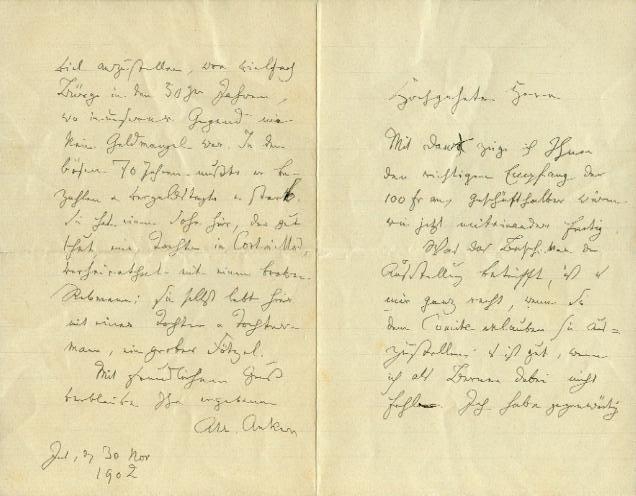 Hochgeehrter Herr
Mit Dank zeige ich Ihnen
den richtigen Empfang der
100 fr an, geschäftshalber wären
wir jetzt miteinander fertig.
Was das der
Ausstellung betrifft, ist es
mir ganz recht, wenn Sie
dem Comite erlauben sie aus=
zustellen. Es ist gut, wenn
ich als Berner dabei nicht
fehle. Ich habe gegenwärtig
viel anzustellen, war vielfach
Bürge in den Jahren,
wo in unserer Gegend
kein Geldmangel war. In den
bösen 70 Jahren mußte er be-
zahlen u vergeldstagte u starb.
Sie hat einen Sohn hier, der gut
thut, eine Tochter in
verheirathet mit einem braven
Rebmann; sie selbst lebt hier
mit einer Tochter u Tochter-
mann, ein grober Fötzel.
Mit freundlichem Gruß
verbleibe Ihr ergebener
Alb. Anker
Ins, d 30 Nov
1902